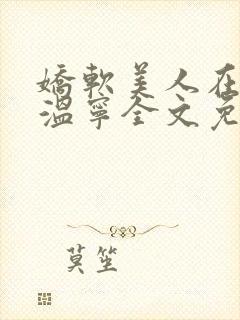 嬌軟美人在
溫寧全文免
莫笙